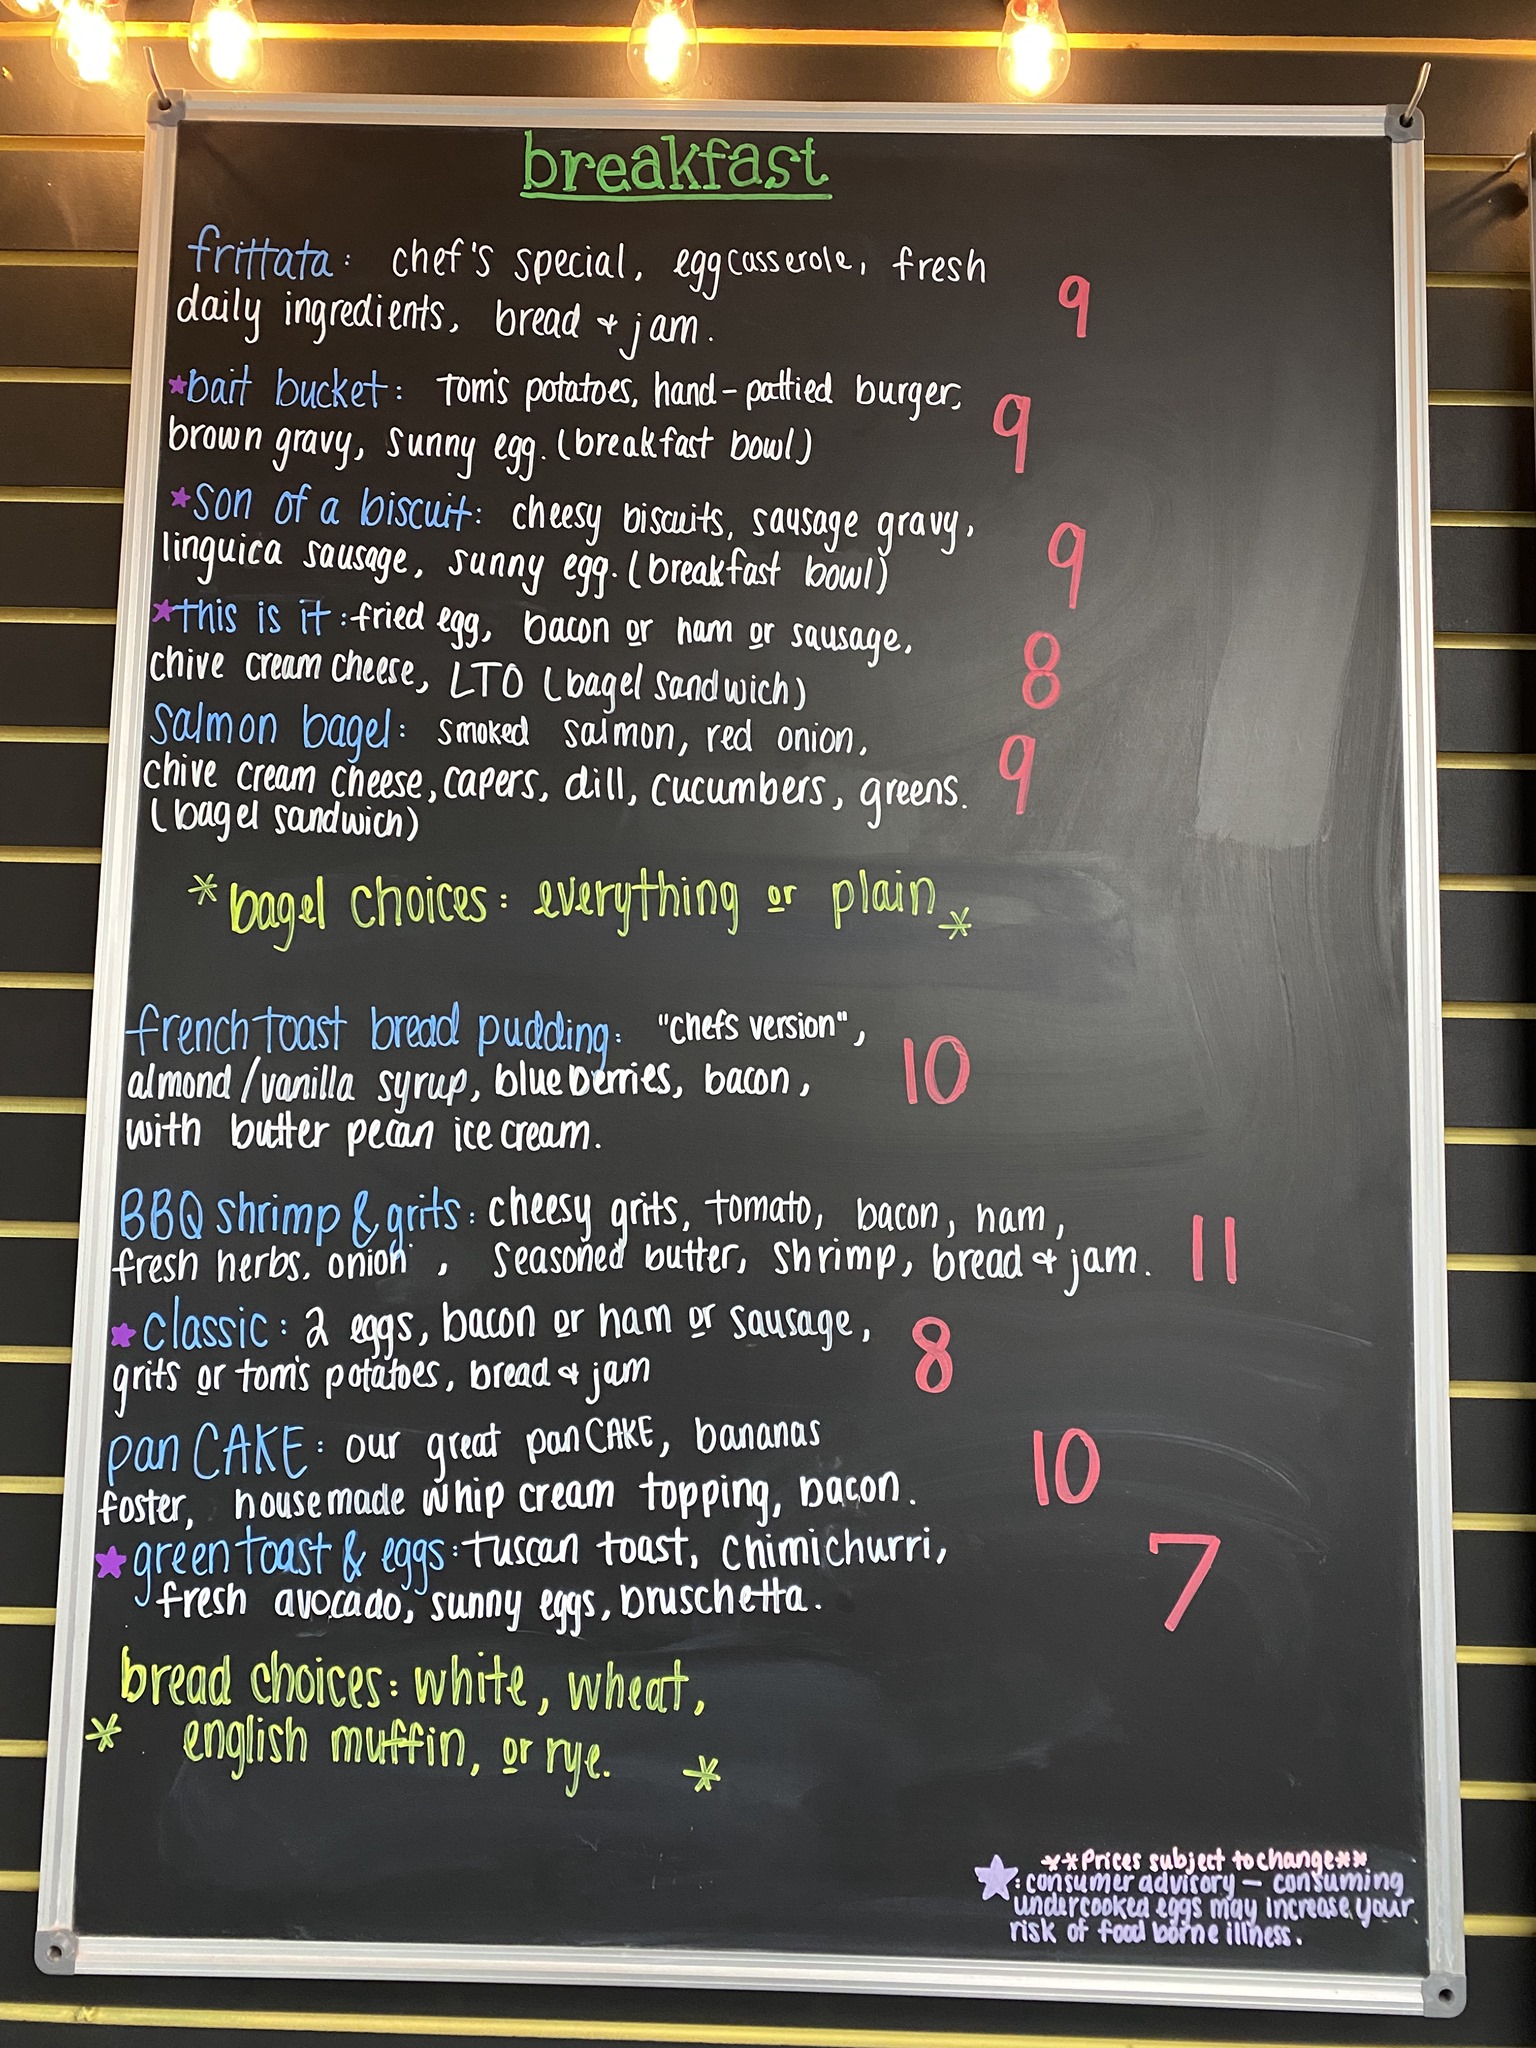 breakfast
frittata: chef's special, egg casserole, fresh
daily ingredients, bread & jam. 9
★bait bucket: Tom's potatoes, hand-pattied burger,
brown gravy, sunny egg. (breakfast bowl) 9
★son of a biscuit: cheesy biscuits, sausage gravy,
linguica sausage, sunny egg. (breakfast bowl) 9
★this is it: fried egg, bacon or ham or sausage,
chive cream cheese, LTO (bagel sandwich) 8
salmon bagel: smoked salmon, red onion,
chive cream cheese, capers, dill, cucumbers, greens. 9
(bagel sandwich)
*bagel choices: everything or plain*
french toast bread pudding: "chefs version",
almond/vanilla syrup, blueberries, bacon, 10
with butter pecan ice cream.
BBQ shrimp & grits: cheesy grits, tomato, bacon, ham,
fresh herbs, onion, seasoned butter, shrimp, bread & jam. 11
★classic: 2 eggs, bacon or ham or sausage,
grits or tom's potatoes, bread & jam 8
pan CAKE: our great pan CAKE, bananas
foster, housemade whip cream topping, bacon. 10
★green toast & eggs: tuscan toast, chimichurri,
fresh avocado, sunny eggs, bruschetta. 7
bread choices: white, wheat,
* english muffin, or rye. *
**Prices subject to change**
★: consumer advisory — consuming
undercooked eggs may increase your
risk of food borne illness.